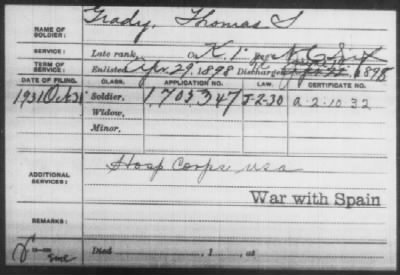 NAME OF SOLDIER: Grady, Thomas S
SERVICE: Late rank, Co K, 1 Reg't N.C. Inf
TERM OF SERVICE: Enlisted Apr. 29, 1898 Discharged , 1898
DATE OF FILING. CLASS. APPLICATION NO. LAW. CERTIFICATE NO.
1931 Oct 31 Soldier, 1703347 J-2-30 A-2-10 32
Widow,
Minor,
ADDITIONAL SERVICES: Hosp Corps USA
War with Spain
REMARKS:
Died , 1 , at